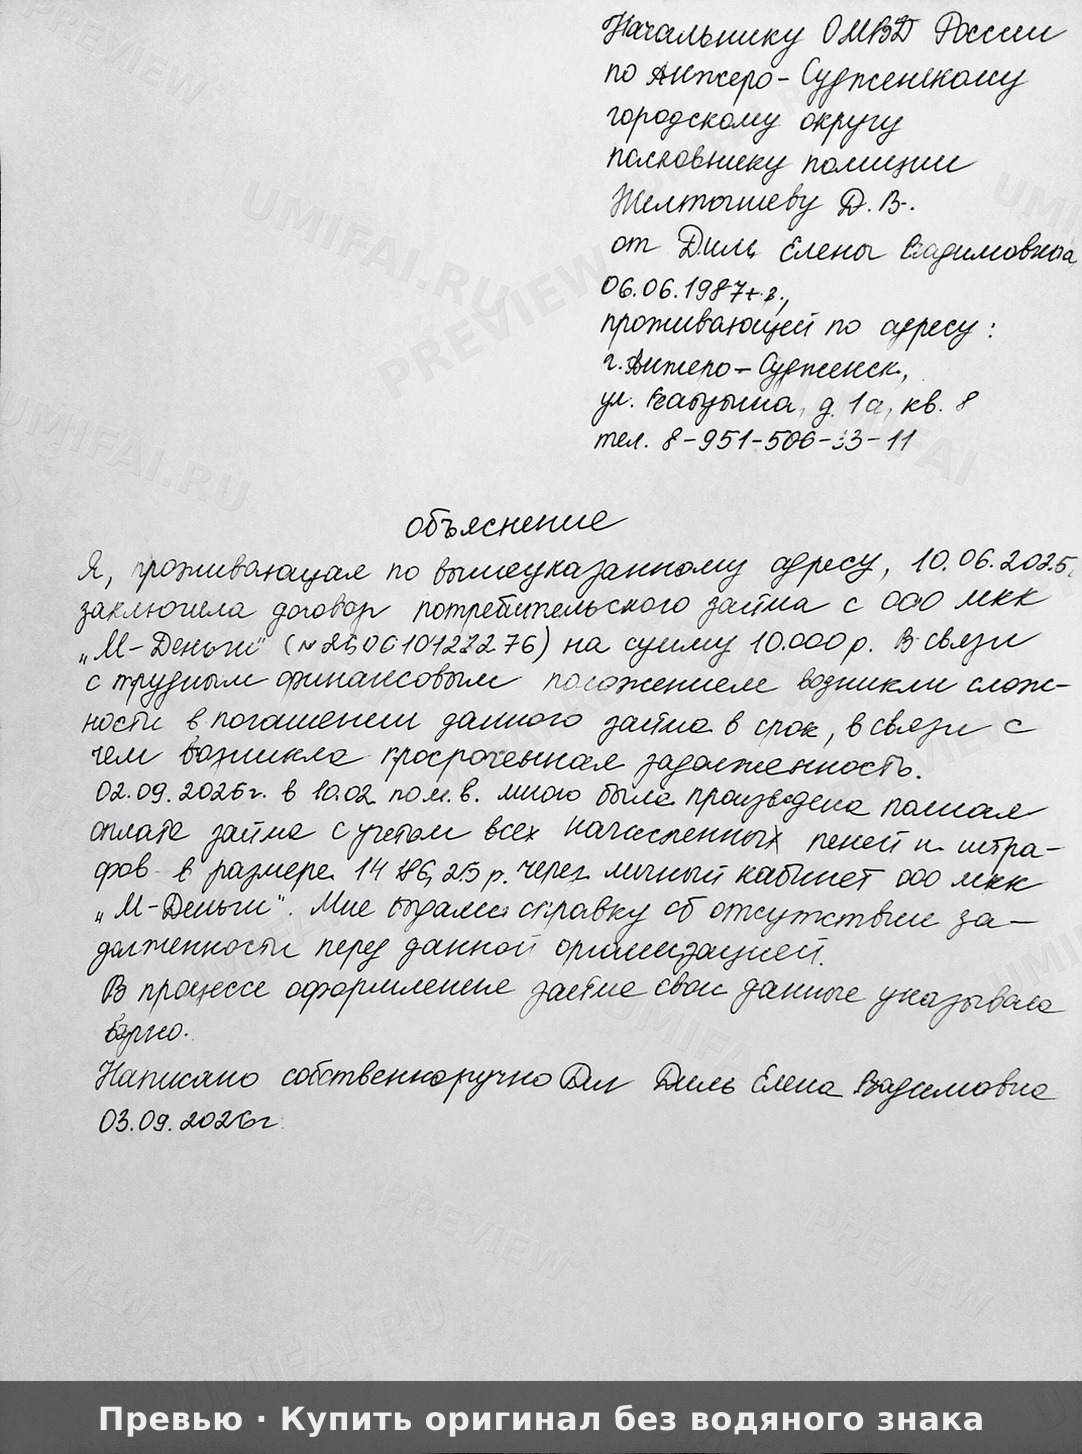 Начальнику ОМВД России
по Анжеро-Судженскому
городскому округу
полковнику полиции
Желтышеву Д.В.
от Диль Елены Вадимовной
06.06.1987г.р.,
проживающей по адресу:
г. Анжеро-Судженск,
ул. д. 1а, кв. 8
тел. 8-951-506-33-11
объяснение
Я, проживающая по вышеуказанному адресу, 10.06.2025
заключила договор потребительского займа с ООО МКК
„М-Деньги" на сумму 10.000 р. В связи
с трудным финансовым положением возникли слож-
ности в погашении данного займа в срок, в связи с
чем возникла просроченная задолженность.
02.09.2026г. в 10.02 по м.в. мною была произведена полная
оплата займа с учетом всех начисленных пеней и штра-
фов в размере 14 р. через личный кабинет ООО МКК
„М-Деньги". Мне выдали справку об отсутствии за-
долженности перед данной организацией.
В процессе оформления займа свои данные указывала
верно.
Написано собственноручно Дил Диль Елена Вадимовна
03.09.2026г
UMIFAI.RU
PREVIEW
Превью · Купить оригинал без водяного знака